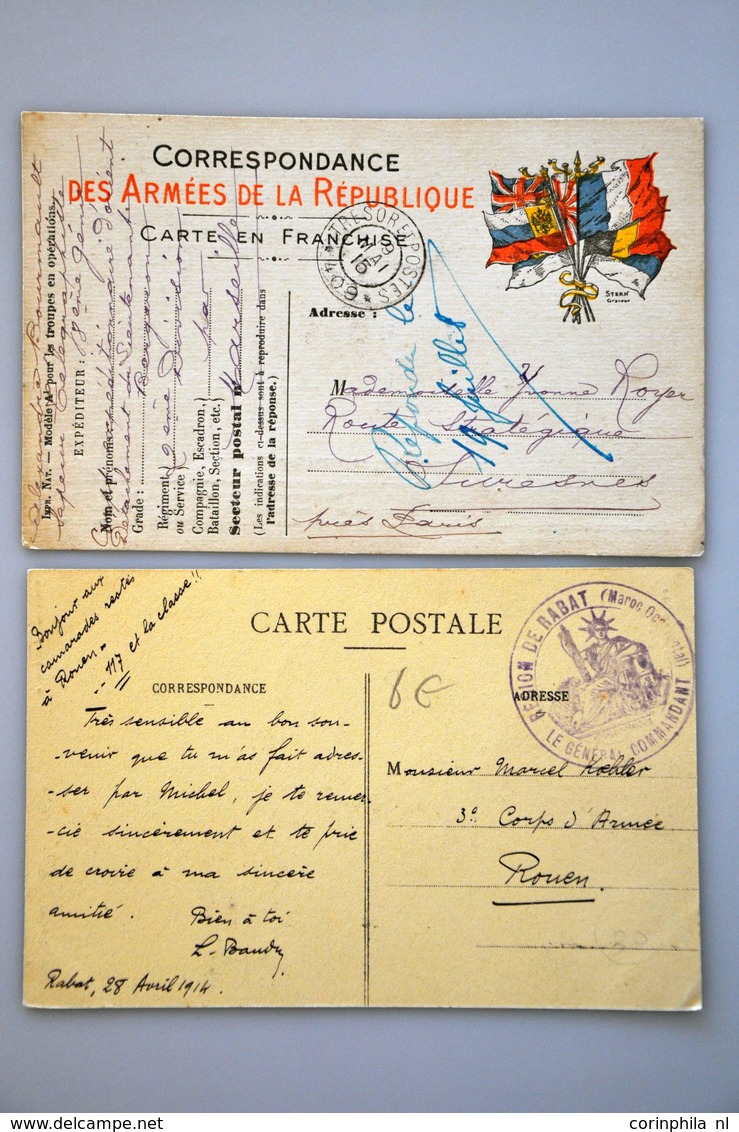 CORRESPONDANCE
DES ARMÉES DE LA RÉPUBLIQUE
CARTE EN FRANCHISE
TRESOR ET POSTES
MAI
15
STERN
Graveur
Adresse :
Mademoiselle Yvonne Royer
Route Stratégique
Suresnes
près Paris
Répondu le
11 Juillet
IMP. NAT. — Modèle A pour les troupes en opérations.
EXPÉDITEUR :
Nom et prénoms
Grade :
Régiment
ou Service)
Compagnie, Escadron,
Bataillon, Section, etc.)
Secteur postal n°
Marseille
(Les indications ci-dessus sont à reproduire dans
l'adresse de la réponse.)
Bonjour aux
camarades restés
à Rouen
117 et la classe !!
CARTE POSTALE
CORRESPONDANCE
Très sensible au bon sou-
-venir que tu m'as fait adres-
-ser par Michel, je te remer-
-cie sincèrement et te prie
de croire à ma sincère
amitié.
Bien à toi
L. Baudry
Rabat, 28 Avril 1914.
6€
ADRESSE
REGION DE RABAT (Maroc Occidental)
LE GÉNÉRAL COMMANDANT
Monsieur Marcel Kohler
3e Corps d'Armée
Rouen.
corinphila nl